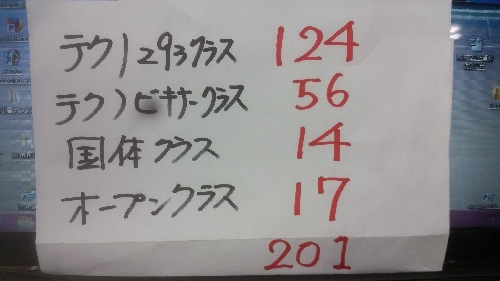 テクノ293クラス 124
テクノビギナークラス 56
国体クラス 14
オープンクラス 17
201